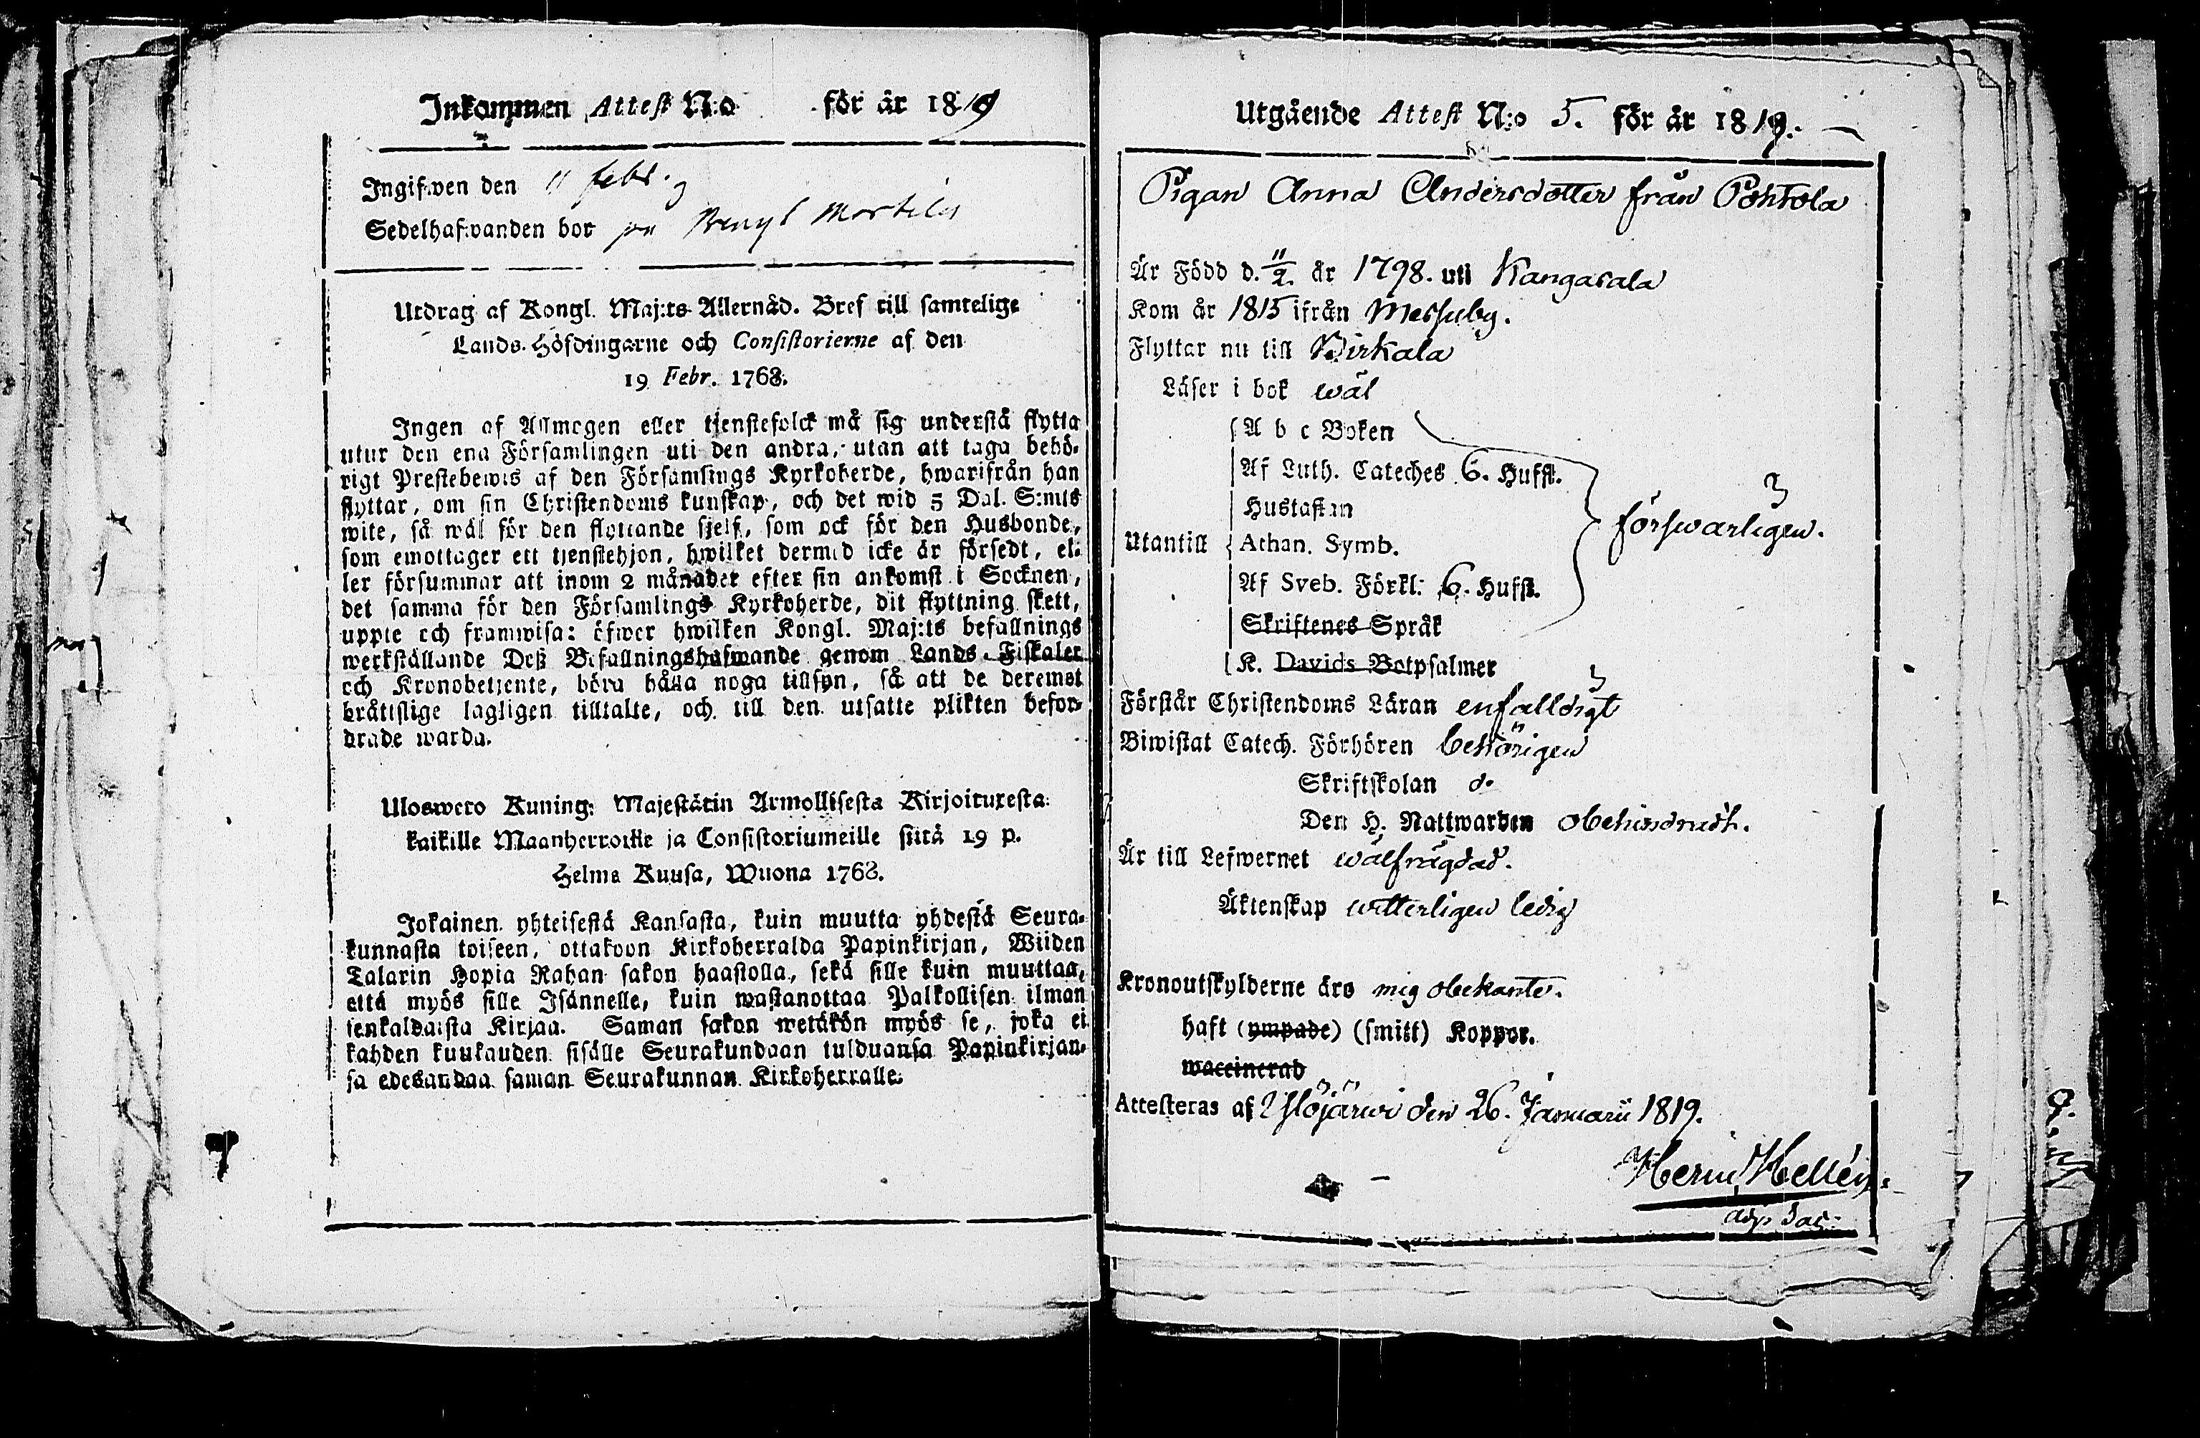 Inkommen Attest N:o för år 1819
Ingifwen den 11 febr.
Sedelhafwanden bor på
Utdrag af Kongl. Maj:ts Allernåd. Bref till samtelige
Lands-Höfdingarne och Consistorierne af den
19 Febr. 1768.
Ingen af Allmogen eller tjenstefolck må sig understå flytta
utur den ena Församlingen uti den andra, utan att taga behö-
rigt Prestebewis af den Församlings Kyrkoherde, hwarifrån han
flyttar, om sin Christendoms kunskap, och det wid 5 Dal. S:mts
wite, så wäl för den flyttande sjelf, som ock för den Husbonde,
som emottager ett tjenstehjon, hwilket dermed icke är försedt, el-
ler försummar att inom 2 månader efter sin ankomst i Socknen,
det samma för den Församlings Kyrkoherde, dit flyttning skett,
uppte och framwisa: öfwer hwilken Kongl. Maj:ts befallnings
werkställande Deß Befallningshafwande genom Lands-Fiskaler
och Kronobetjente, böra hålla noga tillsyn, så att de deremot
bråttslige lagligen tilltalte, och till den utsatte plikten befor-
drade warda.
Ulosweto Kuning: Majestätin Armollisesta Kirjoituxesta:
kaikille Maanherroille ja Consistoriumeille siitä 19 p.
Helme Kuusa, Wuona 1768.
Jokainen yhteisestä Kansasta, kuin muutta yhdestä Seura-
kunnasta toiseen, ottakoon Kirkoherralda Papinkirjan, Wiiden
Talarin Hopia Rahan sakon haastolla, sekä sille kuin muuttaa,
että myös sille Isännelle, kuin wastanottaa Palkollisen ilman
senkaldaista Kirjaa. Saman sakon wetäkön myös se, joka ei
kahden kuukauden sisälle Seurakundaan tulduansa Papinkirjan-
sa edesandaa saman Seurakunnan Kirkoherralle.
Utgående Attest N:o 5. för år 1819.
Pigan Anna Andersdotter från Pohtola
Är Född d. 11/2. år 1798. uti Kangasala
Kom år 1815 ifrån Messuby.
Flyttar nu till Birkala
Läser i bok wäl
A b c Boken
Af Luth. Cateches 6. Hufst.
Hustaflan
Utantill Athan. Symb. förswarligen.
Af Sveb. Förkl: 6. Hufst.
Skriftenes Språk
K. Davids Botpsalmer
Förstår Christendoms Läran enfalldigt
Biwistat Catech. Förhören behörigen
Skriftskolan d:o
Den H. Nattwarden obehindradt.
Är till Lefwernet wälfrägdad.
Äktenskap witterligen ledig
Kronoutskylderne äro mig obekante.
haft (ympade) (smitt) Koppor.
waccinerad
Attesteras af Ylöjärwi den 26. Januarii 1819.
Herm Hellén.
adj. Sac: